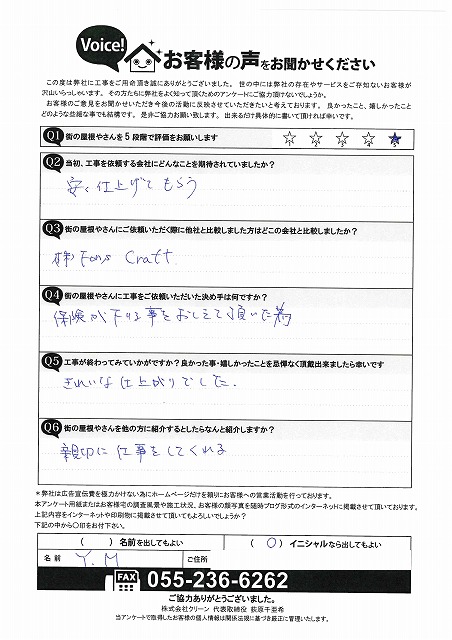 Voice!
お客様の声をお聞かせください
この度は弊社に工事をご用命頂き誠にありがとうございました。 世の中には弊社の存在やサービスをご存知ないお客様が
沢山いらっしゃいます。 その方たちに弊社をよく知って頂くためのアンケートにご協力頂けないでしょうか。
お客様のご意見をお聞かせいただき今後の活動に反映させていただきたいと考えております。 良かったこと、嬉しかったこと
どのような些細な事でも結構です。 是非ご協力お願い致します。 出来るだけ具体的に書いて頂ければ幸いです。
Q1 街の屋根やさんを5段階で評価をお願いします
Q2 当初、工事を依頼する会社にどんなことを期待されていましたか?
安く仕上げてもらう
Q3 街の屋根やさんにご依頼いただく際に他社と比較しました方はどこの会社と比較しましたか?
㈱Fons Craft
Q4 街の屋根やさんに工事をご依頼いただいた決め手は何ですか?
保険が下りる事をおしえて頂いた為
Q5 工事が終わってみていかがですか?良かった事・嬉しかったことを忌憚なく頂戴出来ましたら幸いです
きれいな仕上がりでした.
Q6 街の屋根やさんを他の方に紹介するとしたらなんと紹介しますか?
親切に仕事をしてくれる
＊弊社は広告宣伝費を極力かけない為にホームページだけを頼りにお客様への営業活動を行っております。
本アンケート用紙またはお客様宅の調査風景や施工状況、お客様の顔写真を随時ブログ形式のインターネットに掲載させて頂いております。
上記内容をインターネットや印刷物に掲載させて頂いてもよろしいでしょうか?
下記の中から○印をお付下さい。
( ) 名前を出してもよい
( ○ ) イニシャルなら出してもよい
名 前 Y.M
ご住所
FAX 055-236-6262
ご協力ありがとうございました。
株式会社クリーン 代表取締役 荻原千亜希
当アンケートで取得したお客様の個人情報は関係法規に基づき厳正に管理いたします。